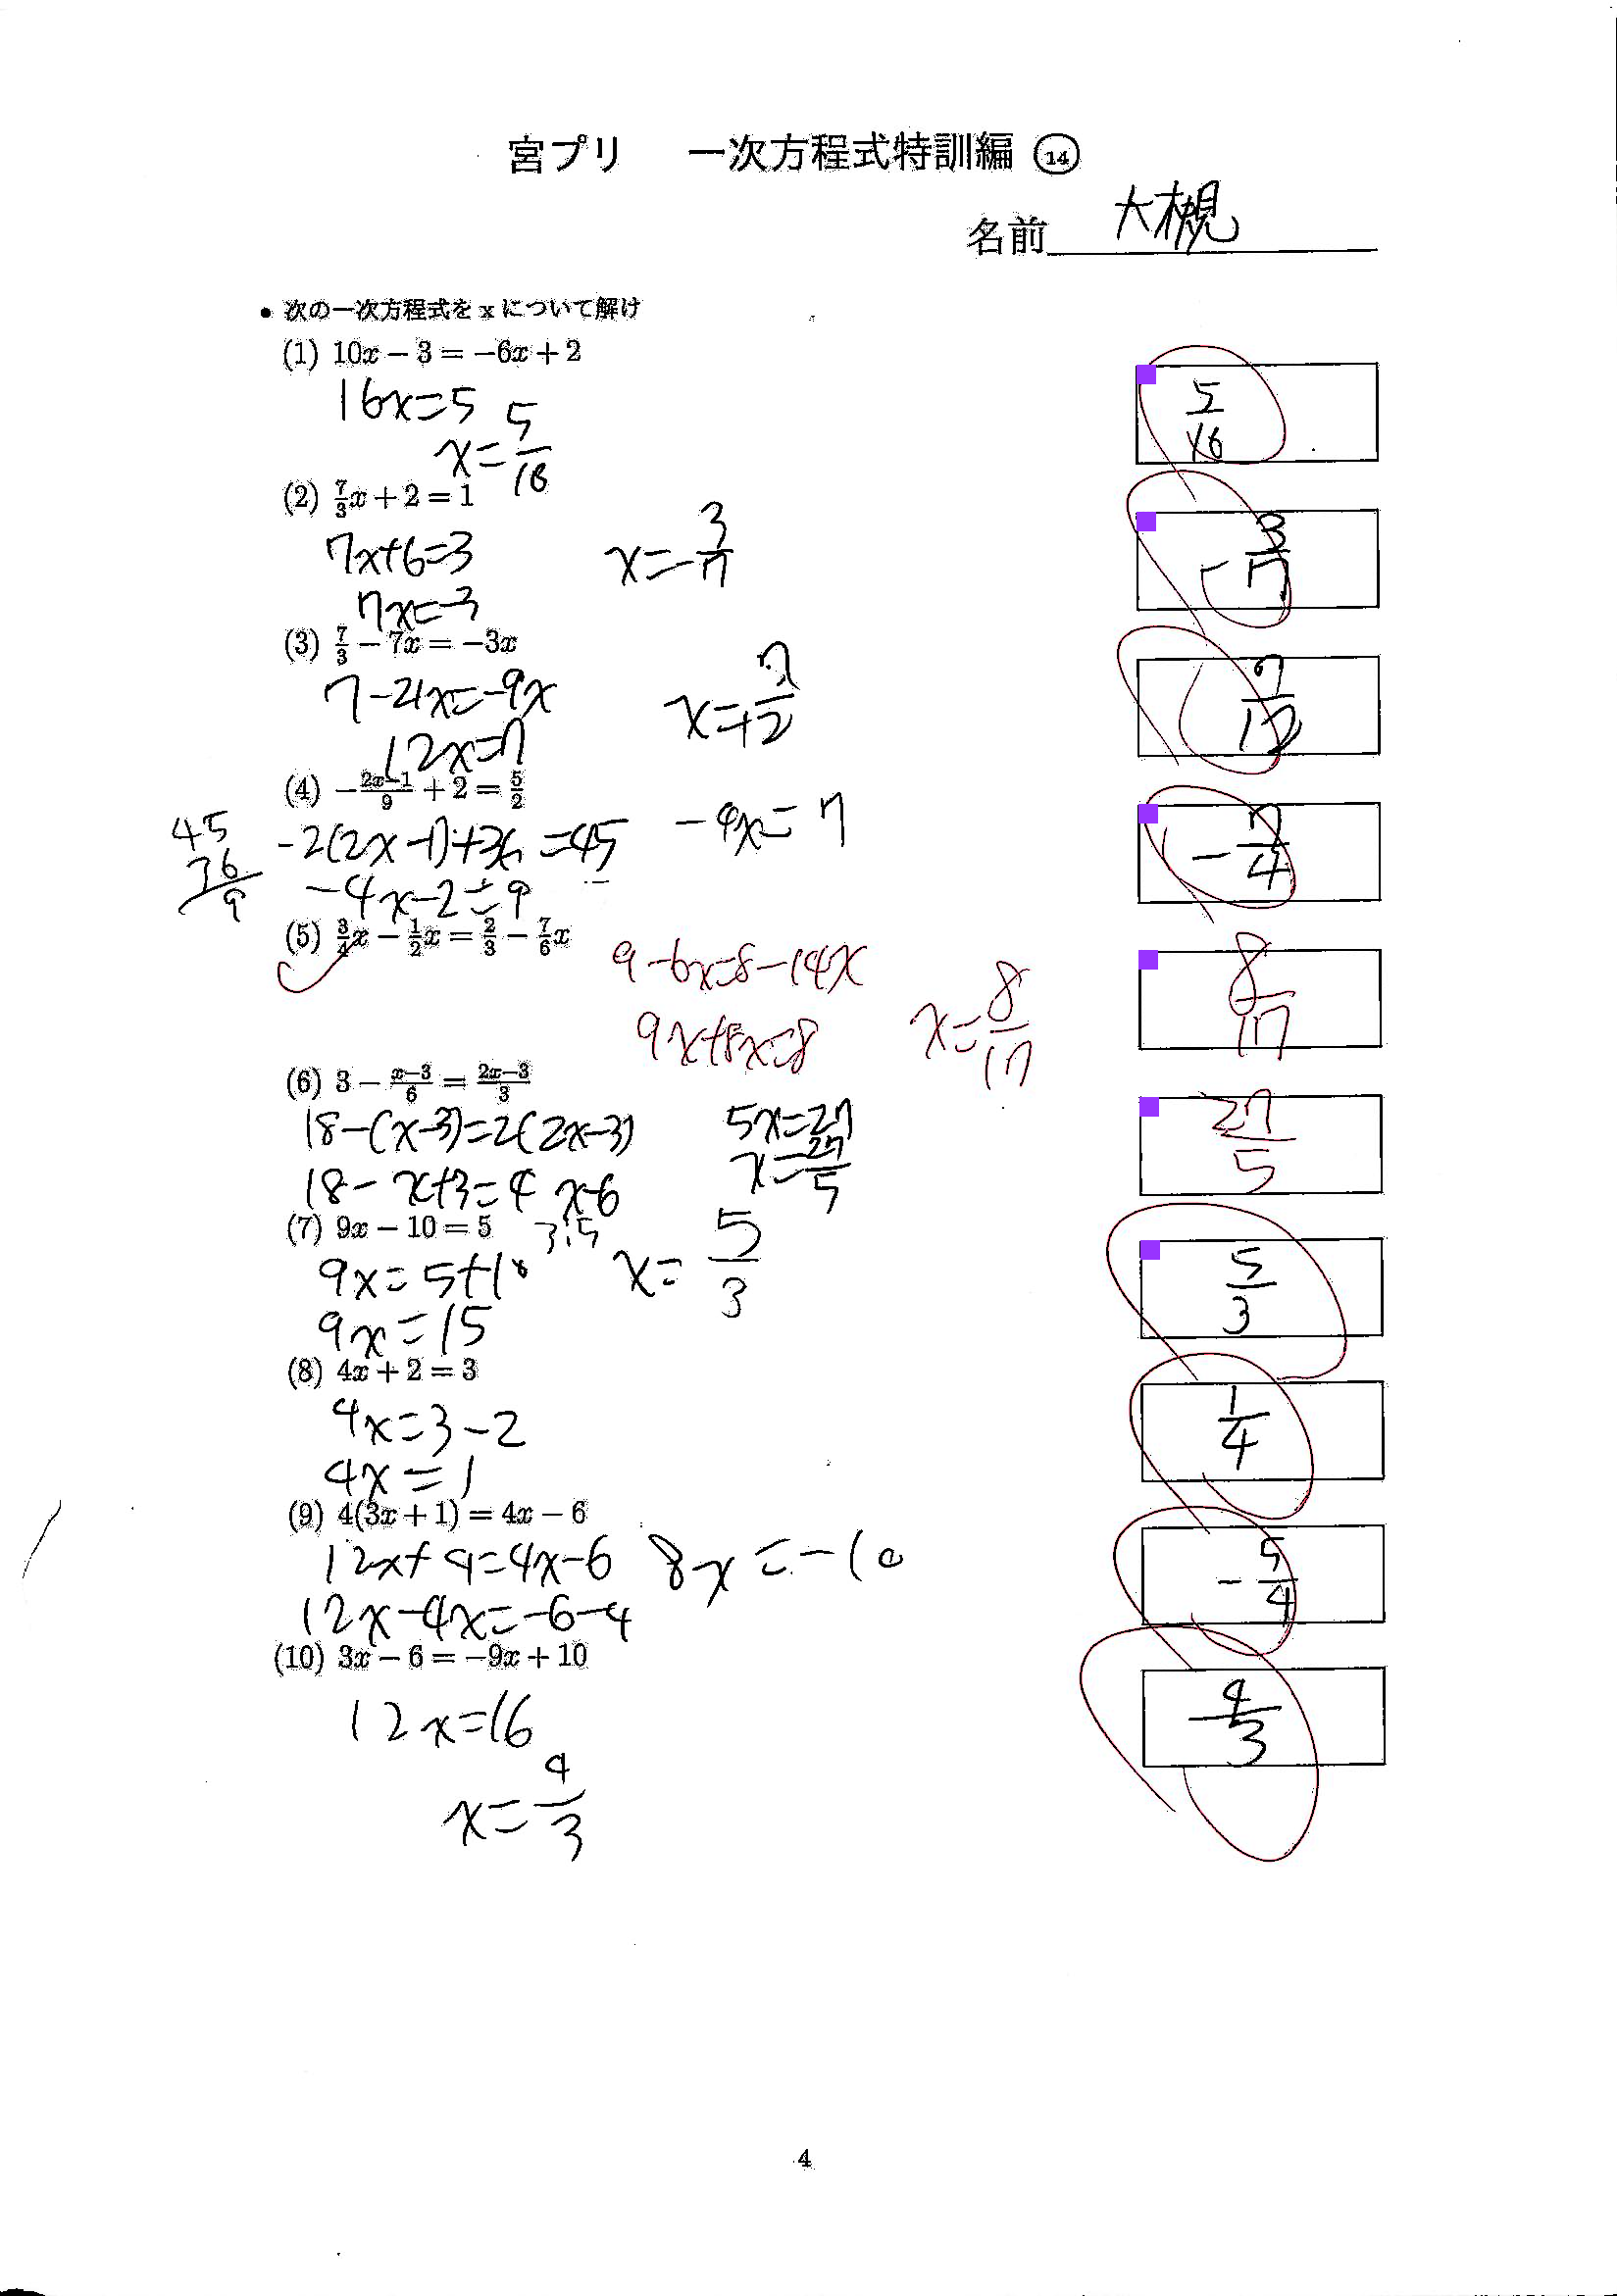 宮プリ 一次方程式特訓編 ⑭
名前 大槻
• 次の一次方程式を x について解け
(1) 10x − 3 = −6x + 2
16x=5
x=5/16
5/16
(2) 7/3x + 2 = 1
7x+6=3
7x=-3
x=-3/7
-3/7
(3) 7/3 − 7x = −3x
7-21x=-9x
12x=7
x=7/12
7/12
(4) −(2x−1)/9 + 2 = 5/2
45
36
9
-2(2x-1)+36=45
-4x-2=9
-4x=7
-7/4
(5) 3/4x − 1/2x = 2/3 − 7/6x
9-6x=8-14x
9x+8x=8
x=8/17
8/17
(6) 3 − (x−3)/6 = (2x−3)/3
18-(x-3)=2(2x-3)
18-x+3=4x-6
5x=27
x=27/5
27/5
(7) 9x − 10 = 5
3:5
9x=5+10
9x=15
x=5/3
5/3
(8) 4x + 2 = 3
4x=3-2
4x=1
1/4
(9) 4(3x + 1) = 4x − 6
12x+4=4x-6
12x-4x=-6-4
8x=-10
-5/4
(10) 3x − 6 = −9x + 10
12x=16
x=4/3
4/3
4